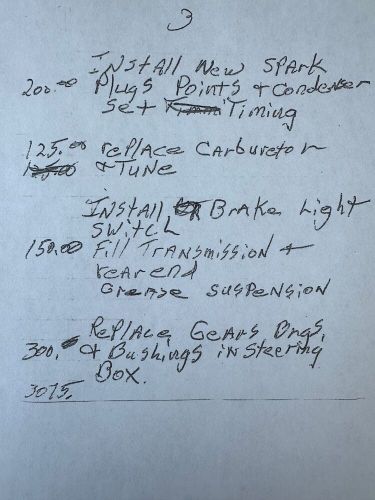 3
Install New Spark
200.00 Plugs Points & Condenser
Set Timing
125.00 replace Carburetor
& Tune
Install Brake Light
Switch
150.00 Fill Transmission &
rear end
Grease Suspension
Replace Gears Brgs,
300. & Bushings in Steering
Box.
3075.